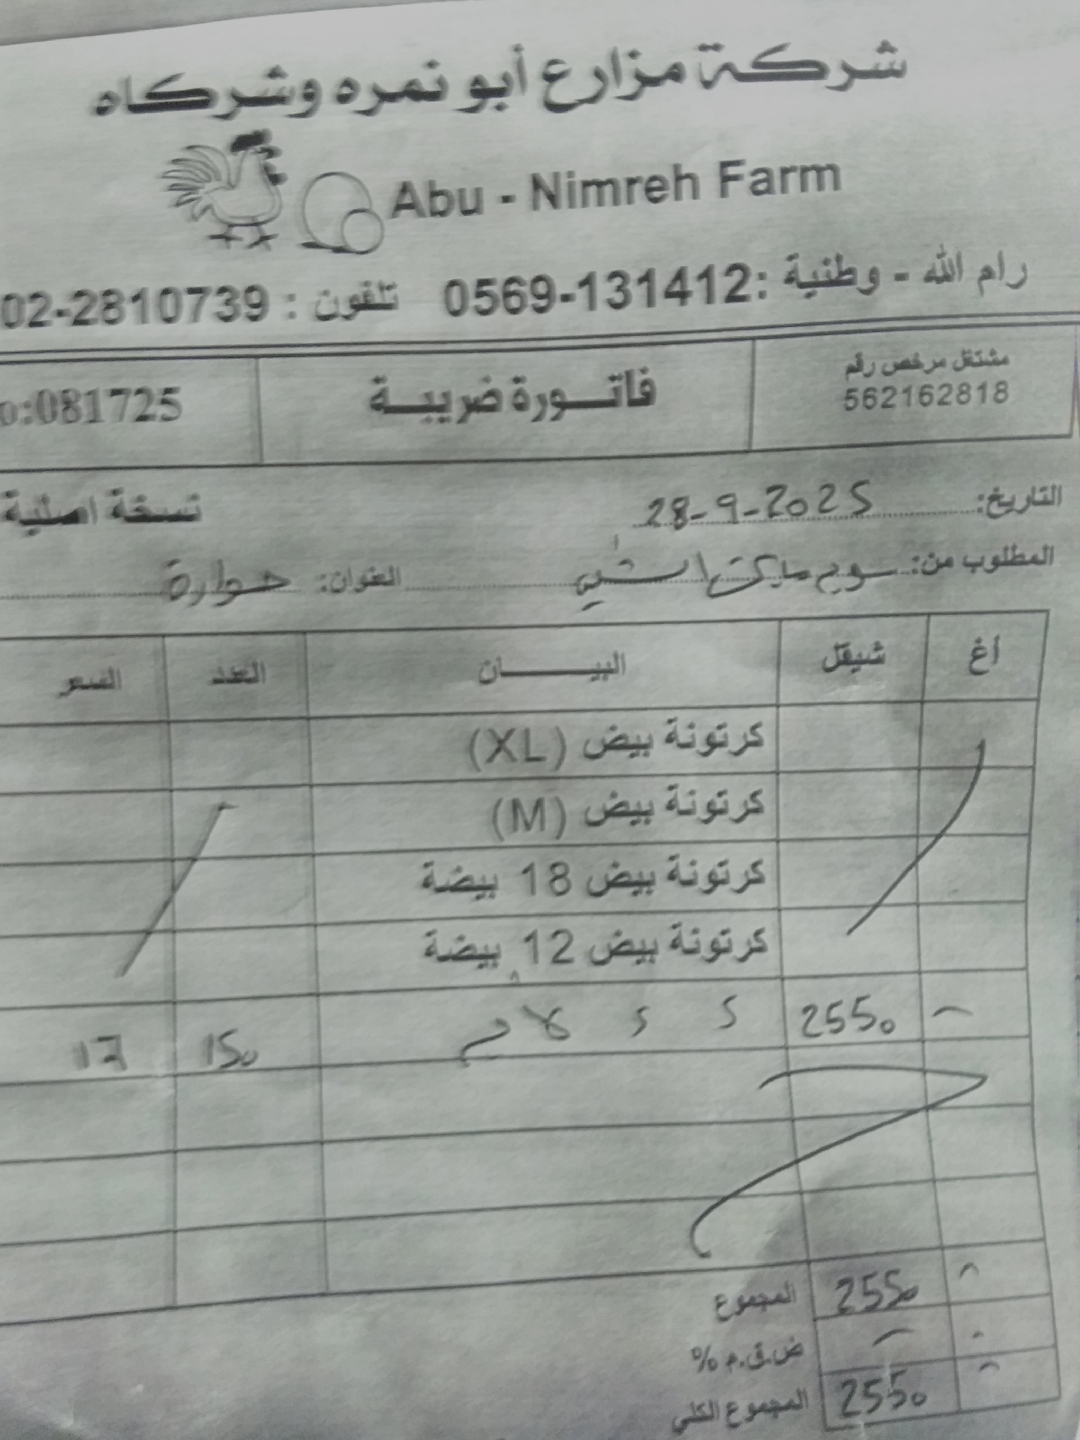 شركة مزارع أبو نمره وشركاه
Abu - Nimreh Farm
رام الله - وطنية : 0569-131412 تلفون : 02-2810739
مشتغل مرخص رقم
562162818
فاتورة ضريبة
o:081725
التاريخ: 28-9-2025 نسخة اصلية
المطلوب من: سوبر ماركت العنوان: حوارة
أغ شيقل البيان العدد السعر
كرتونة بيض (XL)
كرتونة بيض (M)
كرتونة بيض 18 بيضة
كرتونة بيض 12 بيضة
2550 150 17
المجموع 2550
ض.ق.م %
المجموع الكلي 2550